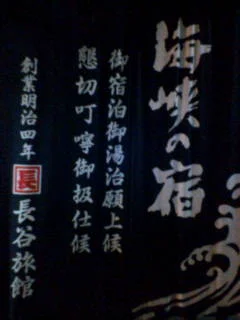 海峡の宿
御宿泊御湯治願上候
懇切叮嚀御扱仕候
創業明治四年
長
長谷旅館